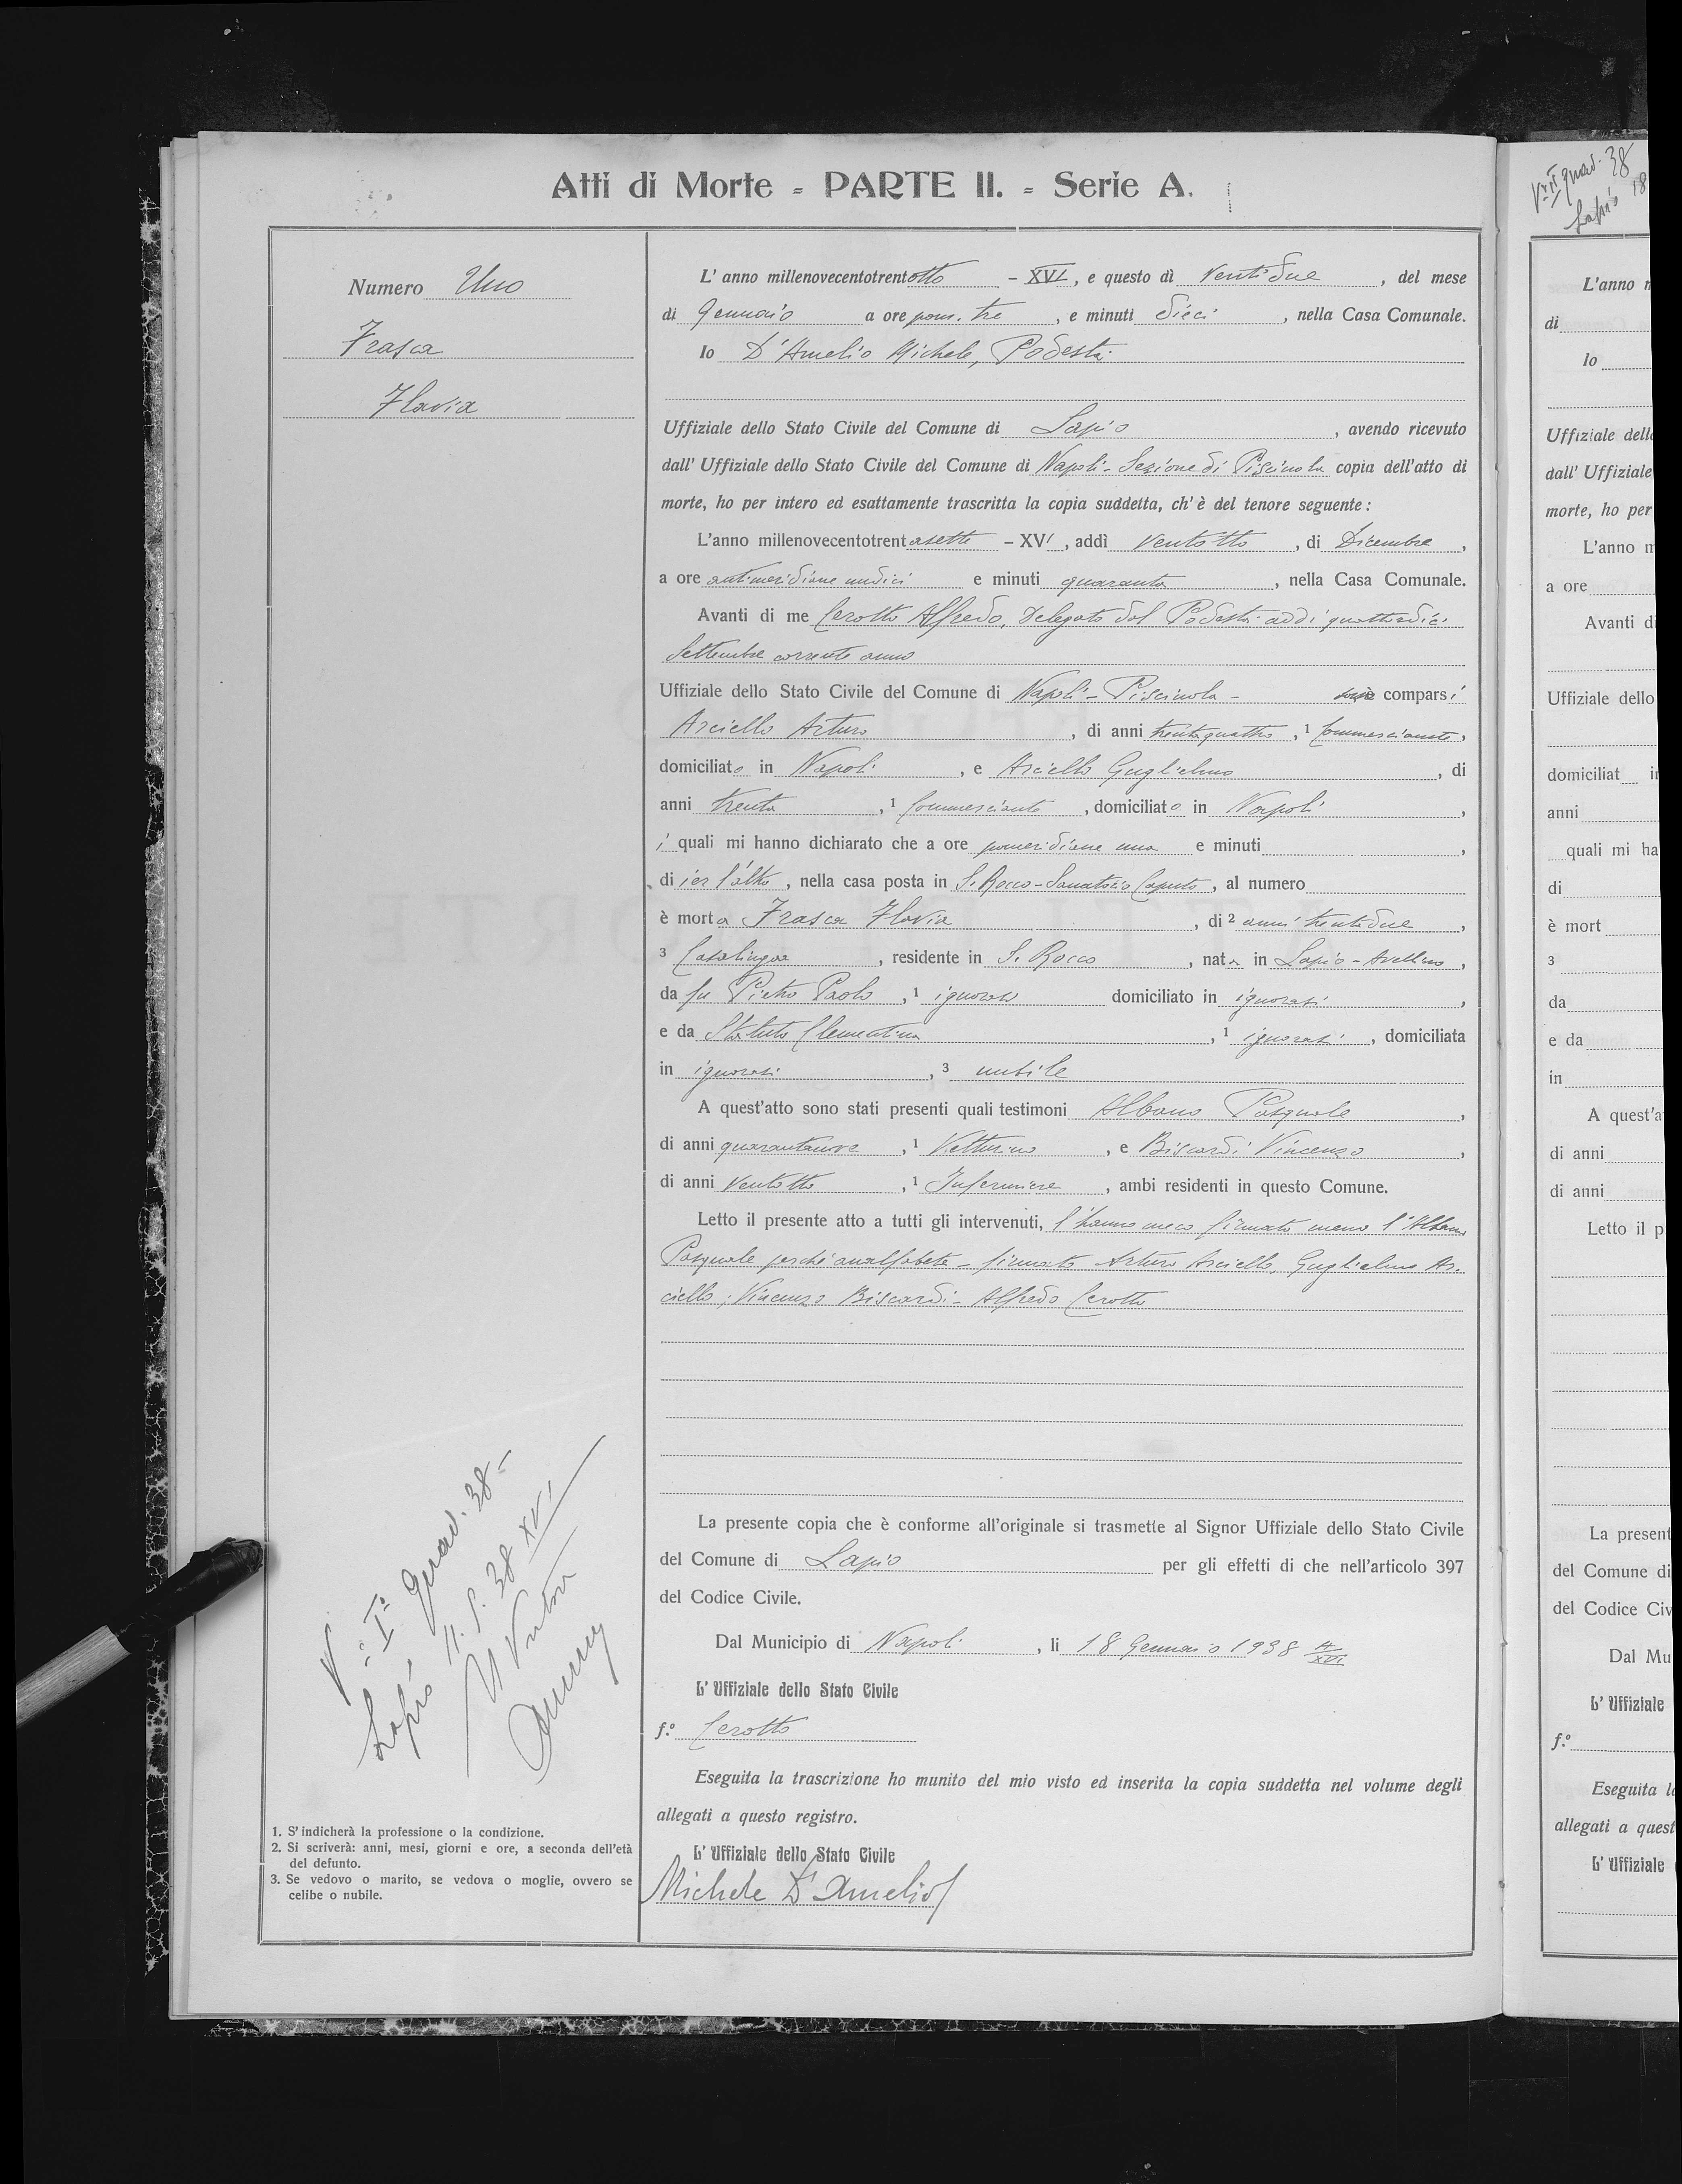 Atti di Morte - PARTE II. - Serie A.
Numero Uno
Frasca
Flavia
L' anno millenovecentotrentotto - XVI, e questo dì ventidue, del mese
di Gennaio a ore pom. tre, e minuti dieci, nella Casa Comunale.
Io D'Amelio Michele, Podestà
Uffiziale dello Stato Civile del Comune di Lapio, avendo ricevuto
dall' Uffiziale dello Stato Civile del Comune di Napoli - Sezione di Piscinola copia dell'atto di
morte, ho per intero ed esattamente trascritta la copia suddetta, ch' è del tenore seguente:
L'anno millenovecentotrentasette - XVI, addì ventotto, di Dicembre,
a ore antimeridiane undici e minuti quaranta, nella Casa Comunale.
Avanti di me Cerotto Alfredo, Delegato dal Podestà addì quattordici
Settembre corrente anno
Uffiziale dello Stato Civile del Comune di Napoli - Piscinola - sono comparsi
Arciello Arturo, di anni trentaquattro, 1 Commerciante,
domiciliato in Napoli, e Arciello Guglielmo, di
anni trenta, 1 Commerciante, domiciliato in Napoli,
i quali mi hanno dichiarato che a ore pomeridiane una e minuti ,
di ier l'altro, nella casa posta in S. Rocco - Sanatorio Caputo, al numero
è morta Frasca Flavia, di 2 anni trentadue,
3 Casalinga, residente in S. Rocco, nata in Lapio - Avellino,
da fu Pietro Paolo, 1 ignorasi domiciliato in ignorasi,
e da Statuto Clementina, 1 ignorasi, domiciliata
in ignorasi, 3 nubile
A quest'atto sono stati presenti quali testimoni Albano Pasquale,
di anni quarantanove, 1 Vetturino, e Biscardi Vincenzo,
di anni ventotto, 1 Infermiere, ambi residenti in questo Comune.
Letto il presente atto a tutti gli intervenuti, l'hanno meco firmato meno l'Albano
Pasquale perché analfabeta - firmato Arturo Arciello, Guglielmo Ar-
ciello, Vincenzo Biscardi - Alfredo Cerotto
La presente copia che è conforme all'originale si trasmette al Signor Uffiziale dello Stato Civile
del Comune di Lapio per gli effetti di che nell'articolo 397
del Codice Civile.
Dal Municipio di Napoli, lì 18 Gennaio 1938 XVI
L' Uffiziale dello Stato Civile
f.º Cerotto
Eseguita la trascrizione ho munito del mio visto ed inserita la copia suddetta nel volume degli
allegati a questo registro.
L' Uffiziale dello Stato Civile
Michele D'Amelio
V. I° Quad. 38 -
Lapio 11. 5. 38 XVI
1. S' indicherà la professione o la condizione.
2. Si scriverà: anni, mesi, giorni e ore, a seconda dell'età
del defunto.
3. Se vedovo o marito, se vedova o moglie, ovvero se
celibe o nubile.
Vº II quad. 38
Lapio 18
L'anno
di
Io
Uffiziale dello
dall' Uffiziale
morte, ho per
L'anno
a ore
Avanti di
Uffiziale dello
domiciliat
anni
quali mi ha
di
è mort
3
da
e da
in
A quest'a
di anni
di anni
Letto il p
La present
del Comune di
del Codice Civ
Dal Mu
L' Uffiziale
f.º
Eseguita l
allegati a quest
L' Uffiziale